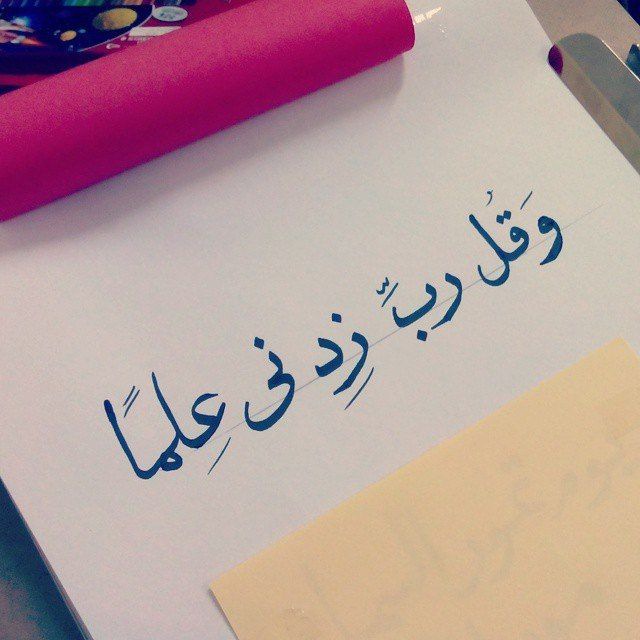 وَقُل رب زِدنى عِلمًا